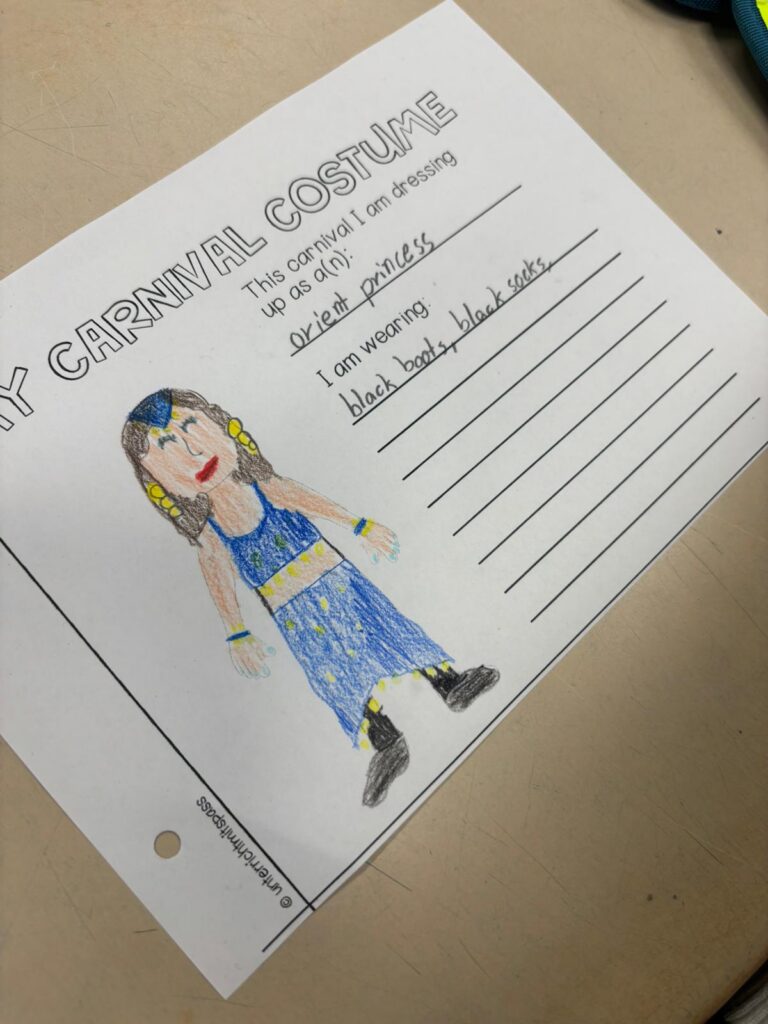 Y CARNIVAL COSTUME
This carnival I am dressing
up as a(n):
orient princess
I am wearing:
black boots, black socks,
© unterrichtmitspass